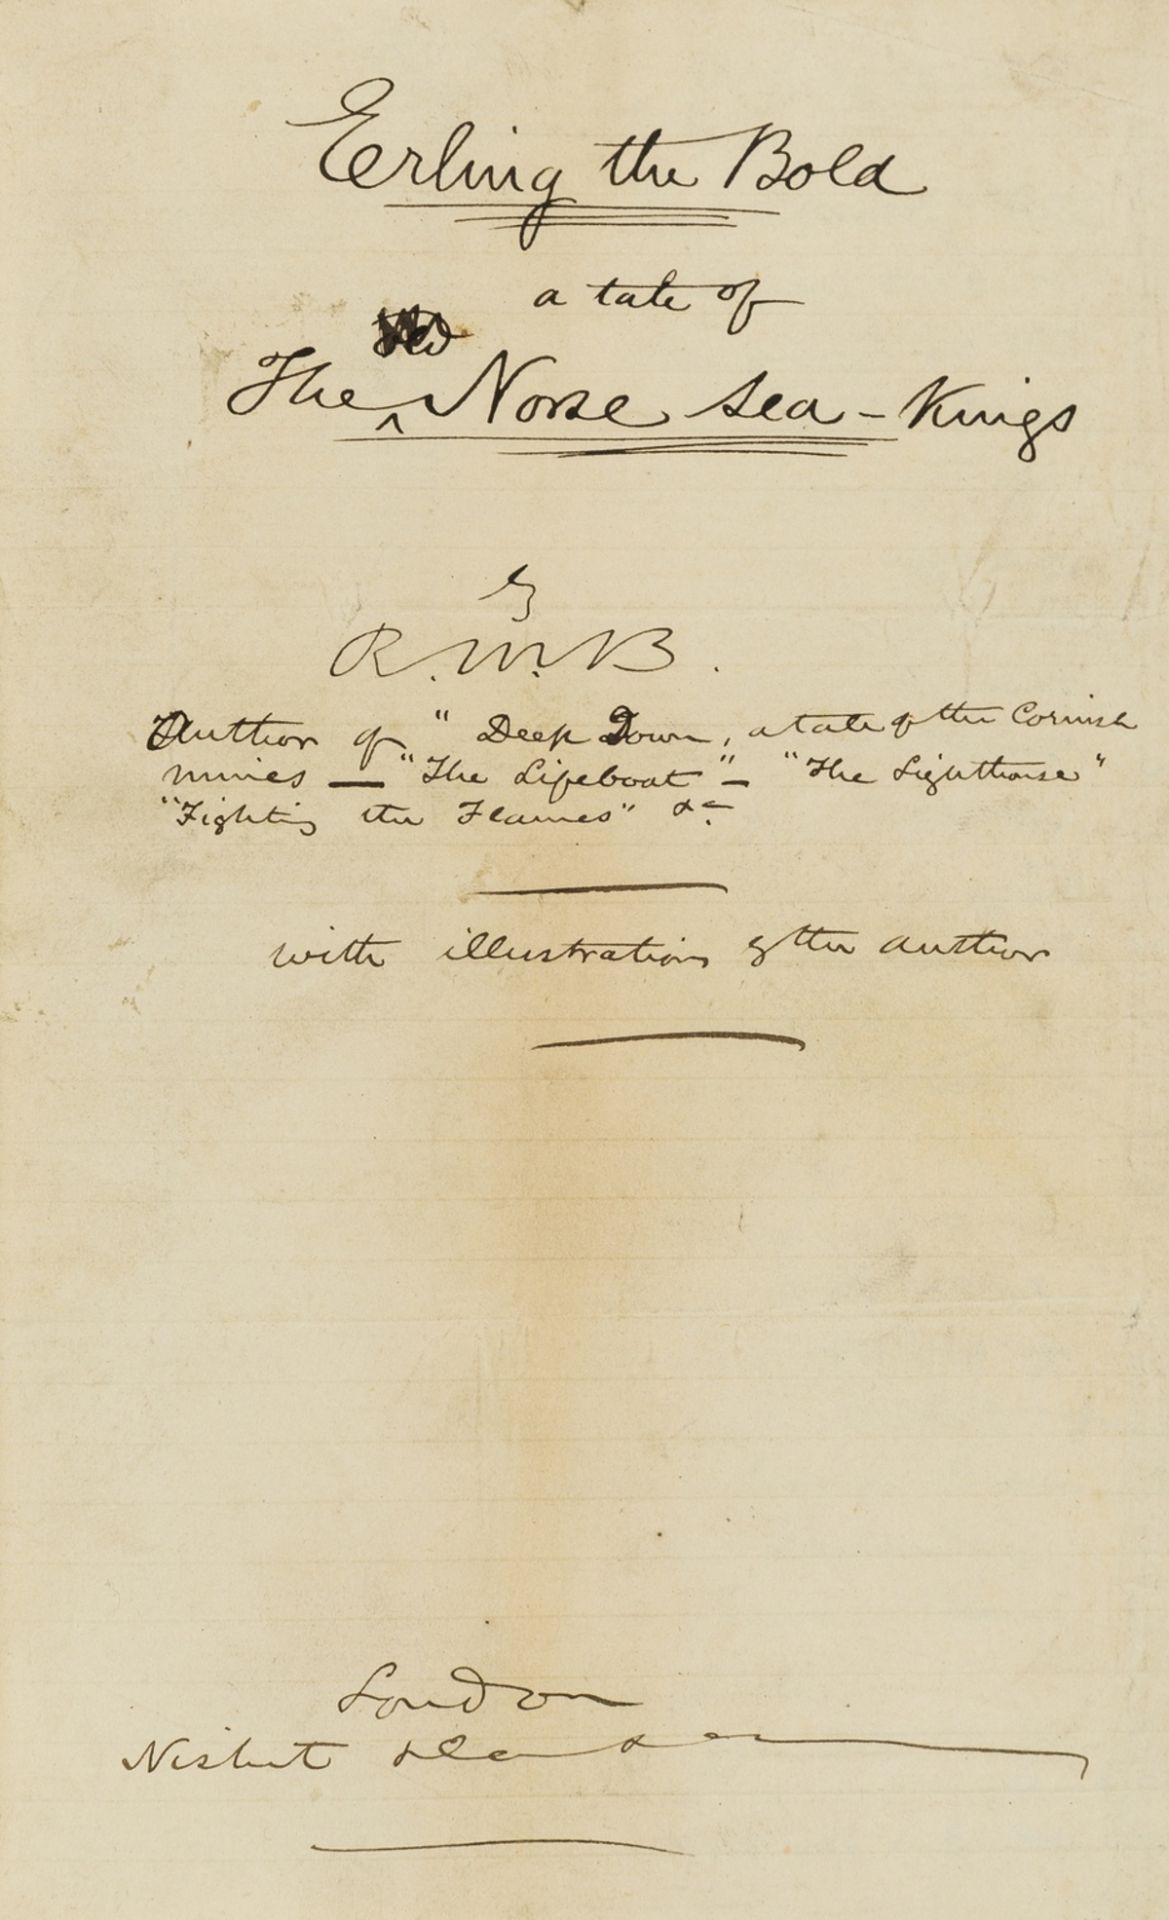 Erling the Bold
a tale of
The Norse Sea-Kings
By
R.M.B.
Author of "Deep Down, a tale of the Cornish
mines — "The Lifeboat" — "The Lighthouse"
"Fighting the Flames" &c.
with illustrations by the author
London
Nisbet &c &c